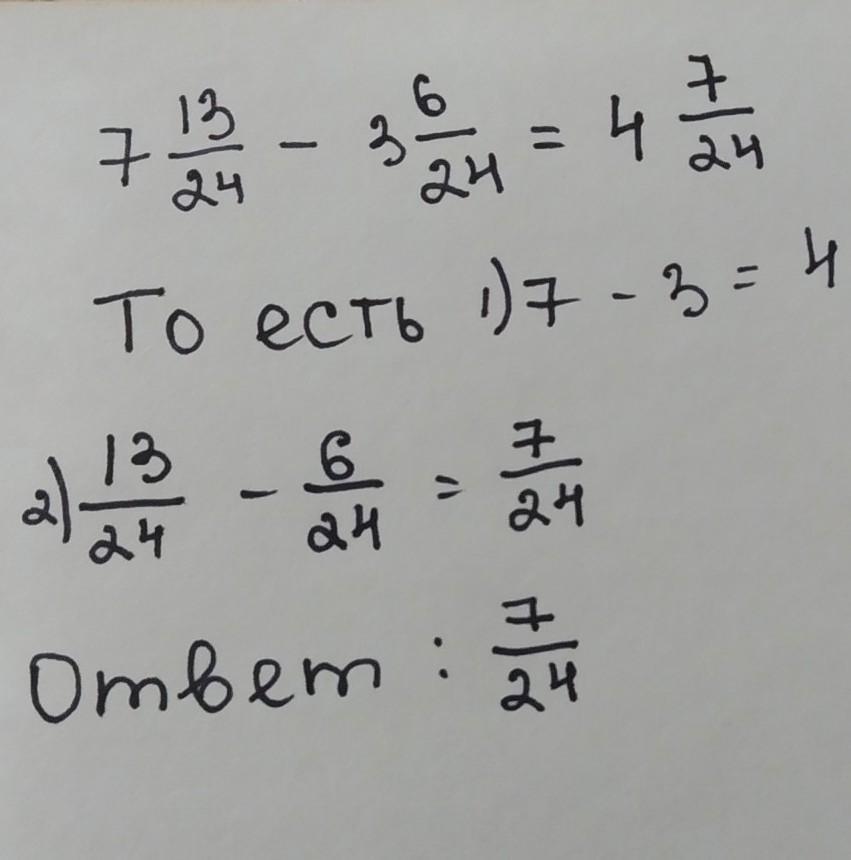 7 13/24 - 3 6/24 = 4 7/24
То есть 1) 7 - 3 = 4
2) 13/24 - 6/24 = 7/24
Ответ : 7/24